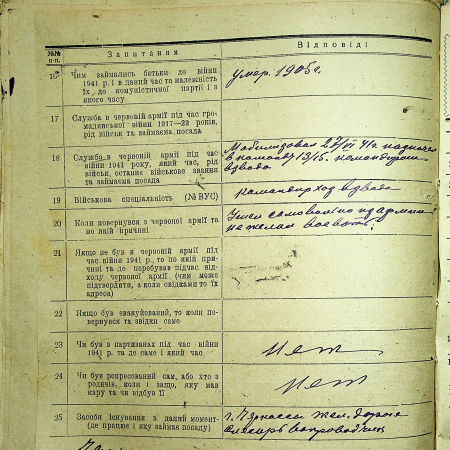 №№ п-п.
Запитання
Відповіді
16
Чим займались батьки до війни
1941 р. і в даний час та належність
їх до комуністичної партії і з
якого часу
умер. 1905 г.
17
Служба в червоній армії під час гро-
мадянської війни 1917—22 років,
рід військ та займаєма посада
18
Служба в червоній армії під час
війни 1941 року, який час, рід
військ, останнє військове звання
та займаєма посада
Мобилизован 27/VI 41 г.
командиром
взвода
19
Військова спеціяльність (№ ВУС)
командир взвода
20
Коли повернувся з червоної армії та
по якій причині
Ушел самовольно из армии
не желая воевать.
21
Якщо не був в червоній армії під
час війни 1941 р., то по якій при-
чині та де перебував підчас від-
ходу червоної армії (чим може
підтвердити, а коли свідками то їх
адреса)
22
Якщо був евакуйований, то коли по-
вернувся та звідки саме
23
Чи був в партизанах під час війни
1941 р. та де саме і який час
нет
24
Чи був репресований сам, або хто з
родичів, коли і защо, яку мав
кару та чи відбув її
нет
25
Засоби існування в даний момент-
(де працює і яку займає посаду)
г. Черкассы жел. дорога
слесарь